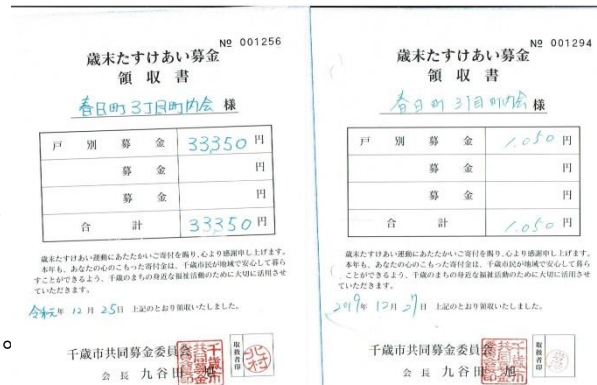 № 001256
歳末たすけあい募金
領収書
春日町3丁目町内会 様
戸別募金 33350 円
募金 円
募金 円
合計 33350 円
歳末たすけあい運動にあたたかいご寄付を賜り、心より感謝申し上げます。
本年も、あなたの心のこもった寄付金は、千歳市民が地域で安心して暮ら
すことができるよう、千歳のまちの身近な福祉活動のために大切に活用させ
ていただきます。
令和元年 12月 25日 上記のとおり領収いたしました。
千歳市共同募金委員会
会長 九谷田 旭
取扱者印
北村
№ 001294
歳末たすけあい募金
領収書
春日町3丁目町内会 様
戸別募金 1,050 円
募金 円
募金 円
合計 1,050 円
歳末たすけあい運動にあたたかいご寄付を賜り、心より感謝申し上げます。
本年も、あなたの心のこもった寄付金は、千歳市民が地域で安心して暮ら
ことができるよう、千歳のまちの身近な福祉活動のために大切に活用させ
ていただきます。
2019年 12月 27日 上記のとおり領収いたしました。
千歳市共同募金委員会
会長 九谷田 旭
取扱者印